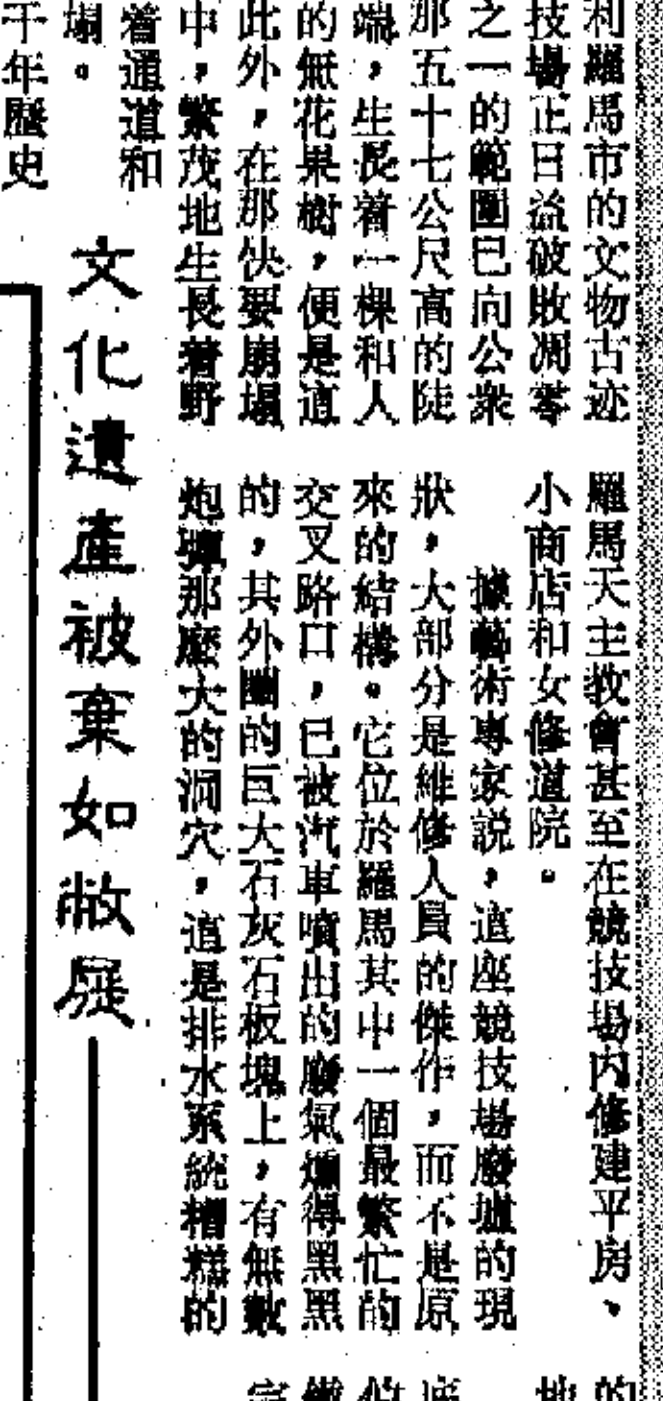 利羅馬市的文物古迹
技場正日益破敗凋零
之一的範圍已向公衆
那五十七公尺高的陡
端，生長着一棵和人
的無花果樹，便是這
此外，在那快要崩塌
中，繁茂地生長着野
着通道和
塌。
千年歷史
文化遺產被棄如敝屣
羅馬天主教會甚至在競技場内修建平房、
小商店和女修道院。
據藝術專家説，這座競技場廢墟的現
狀，大部分是維修人員的傑作，而不是原
來的結構。它位於羅馬其中一個最繁忙的
交叉路口，已被汽車噴出的廢氣燻得黑黑
的，其外圍的巨大石灰石板塊上，有無數
炮彈那麽大的洞穴，這是排水系統糟糕的
的
地